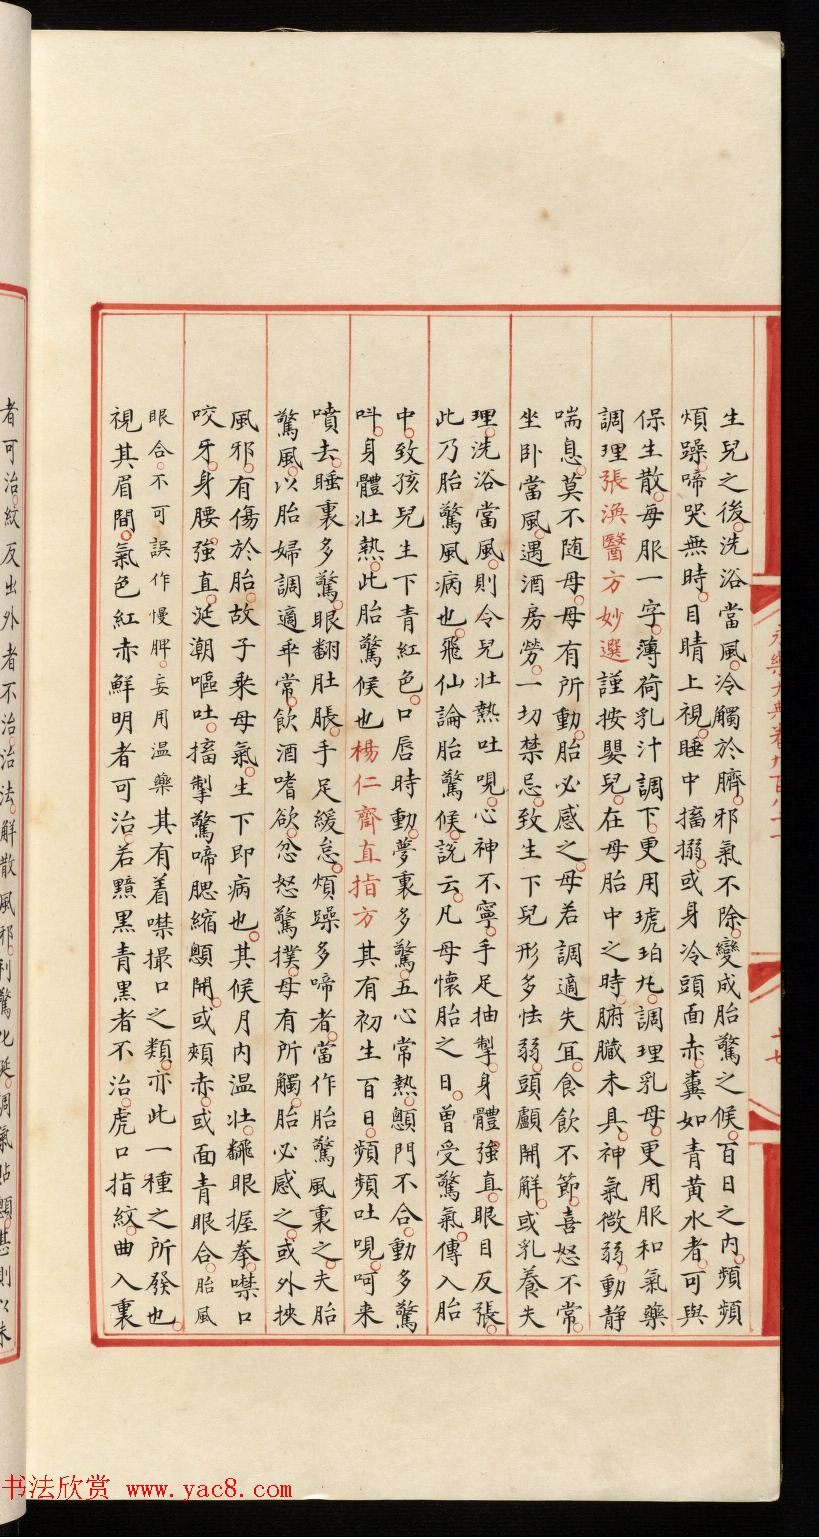 生兒之後。洗浴當風。冷觸於臍。邪氣不除。變成胎驚之候。百日之內。頻頻
煩躁。啼哭無時。目睛上視。睡中搐搦。或身冷頭面赤。糞如青黃水者。可與
保生散。每服一字。薄荷乳汁調下。更用琥珀丸。調理乳母。更用服和氣藥
調理張渙醫方妙選謹按嬰兒。在母胎中之時。腑臟未具。神氣微弱。動靜
喘息。莫不隨母。母有所動。胎必感之。母若調適失宜。食飲不節。喜怒不常。
坐卧當風。遇酒房勞。一切禁忌。致生下兒形多怯弱。頭顱開解。或乳養失
理。洗浴當風。則令兒壯熱吐哯。心神不寧。手足抽掣。身體強直。眼目反張。
此乃胎驚風病也。飛仙論胎驚候。說云。凡母懷胎之日。曾受驚氣。傳入胎
中。致孩兒生下青紅色。口唇時動。夢裏多驚。五心常熱。顖門不合。動多驚
呌。身體壯熱。此胎驚候也楊仁齋直指方其有初生百日。頻頻吐哯。呵来
噴去。睡裏多驚。眼翻肚脹。手足緩怠。煩躁多啼者。當作胎驚風裏之。夫胎
驚風。以胎婦調適乖常。飲酒嗜欲。忿怒驚撲。母有所觸。胎必感之。或外挾
風邪。有傷於胎。故子乘母氣。生下即病也。其候月內温壯。飜眼握拳。噤口
咬牙。身腰。強直。涎潮嘔吐。搐掣驚啼腮縮顖開。或頰赤。或面青眼合。胎風
眼合。不可誤作慢脾。妄用温藥其有着噤撮口之類。亦此一種之所發也。
視其眉間。氣色紅赤鮮明者可治。若黯黑青黑者不治。虎口指紋。曲入裏
者可治。紋反出外者不治治法。解散風邪。利驚化涎。調氣貼顖。甚則以朱
永樂大典卷九百八十一
書法欣赏 www.yac8.com